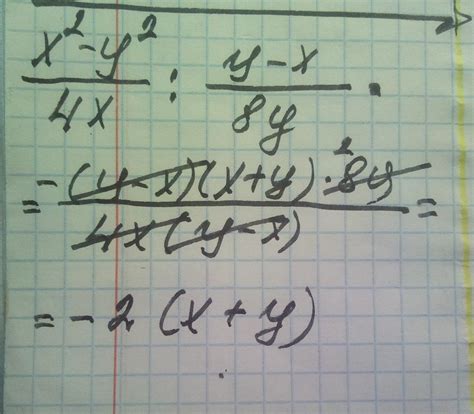 x²-y²/4x : y-x/8y .
= -(y-x)(x+y)·²8y/4x(y-x) =
= -2 (x+y)